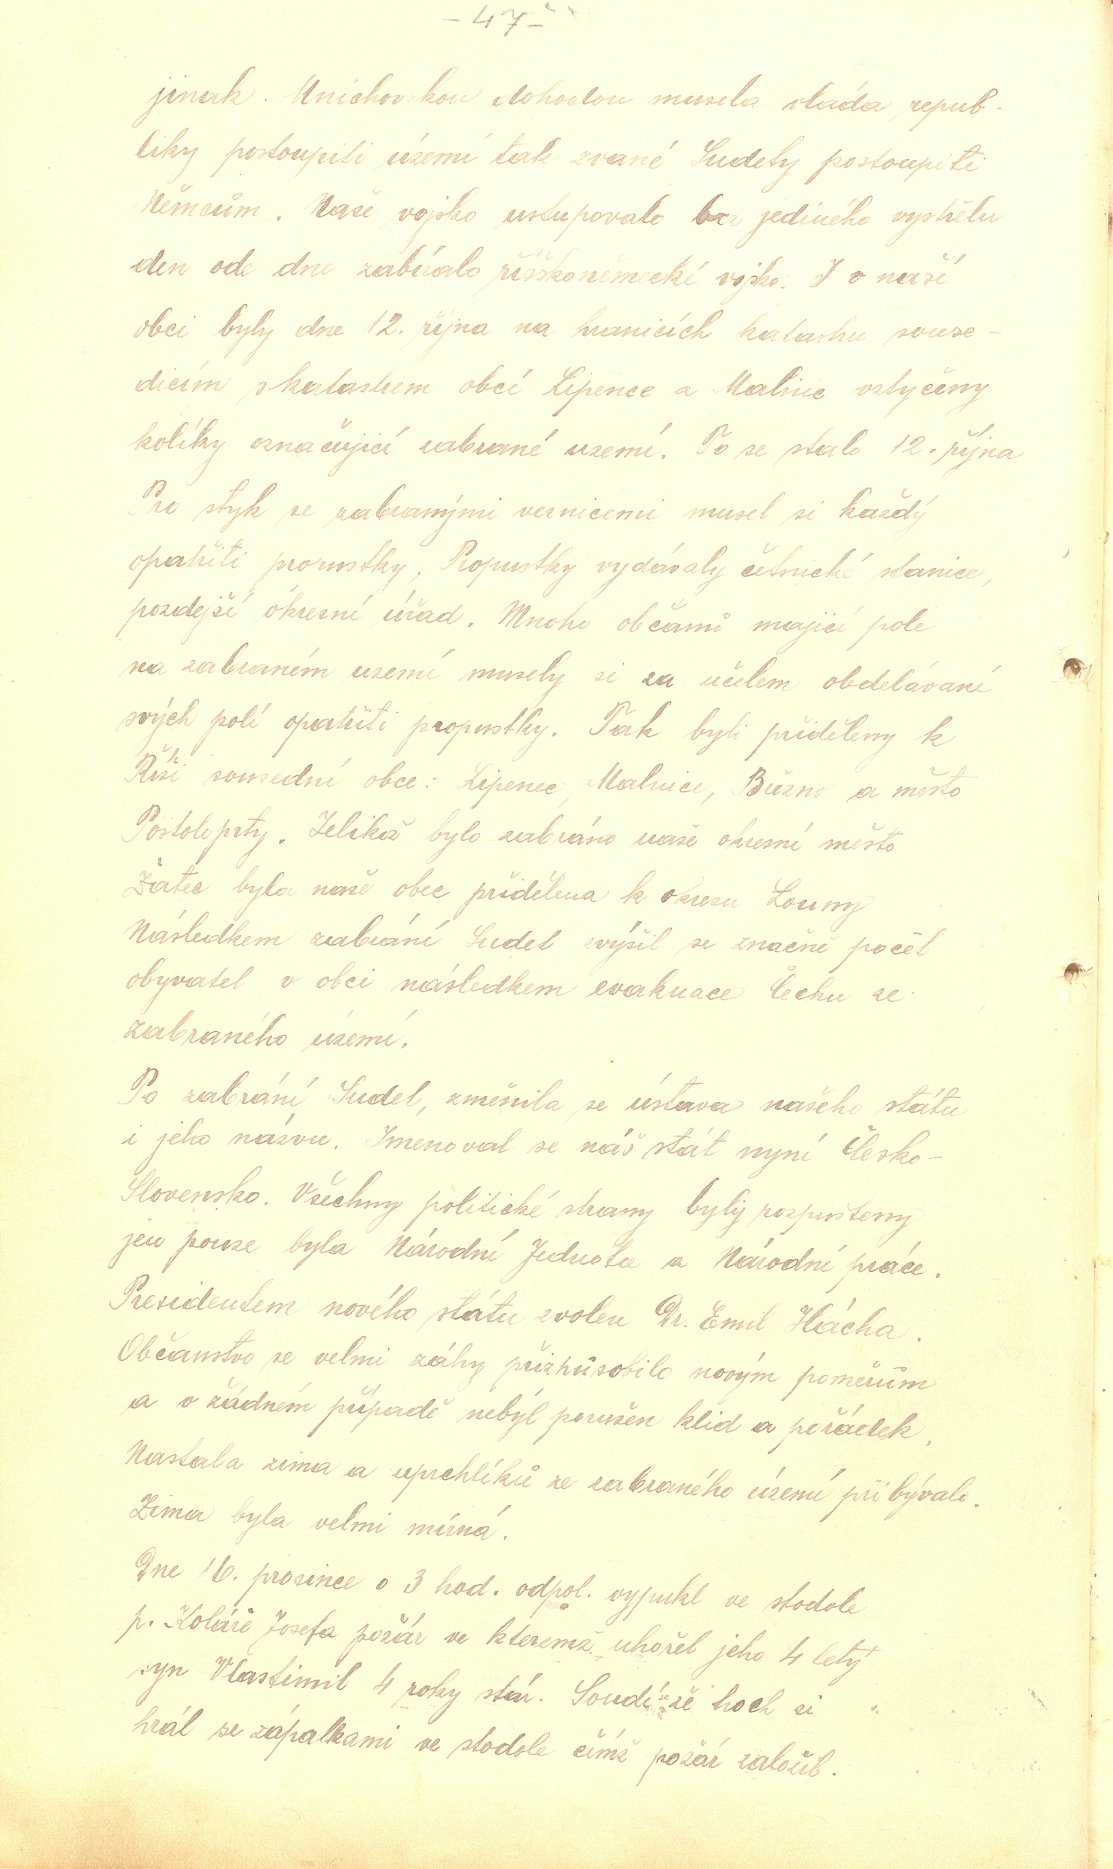 - 47 -
jinak. Mnichovskou dohodou musela vláda repub-
liky postoupiti území tak zvané Sudety postoupiti
Němcům. Naše vojsko ustupovalo bez jediného výstřelu
den ode dne zabíralo říšskoněmecké vojsko. I v naší
obci byly dne 12. října na hranicích katastru souse-
dícím s katastrem obcí Lipence a Malnic vztyčeny
kolíky označující zabrané uzemí. To se stalo 12. října
Pro styk se zabranými vesnicemi musel si každý
opatřiti propustky, Propustky vydávaly četnické stanice,
pozdejší ókresní úřad. Mnoho občanů mající pole
na zabraném uzemí musely si za učelem obdelávaní
svých polí opatřiti propustky. Tak byli přiděleny k
Říši sousední obce: Lipenec, Malnice, Březno a město
Postoloprty. Jelikož bylo zabráno naše okresní město
Žatec byla naše obec přidělena k okresu Louny
Následkem zabrání Sudet zvýšil se značně počet
obyvatel v obci následkem evakuace Čechu ze
zabraného území.
Po zabrání Sudet, změnila se ústava našeho státu
i jeho názvu. Jmenoval se náš stát nyní Česko-
Slovensko. Všechny politické strany byly rozpusteny
jen pouze byla Národní Jednota a Národní práce.
Presidentem nového státu zvolen Dr. Emil Hácha.
Občanstvo se velmi záhy přizpůsobilo novým poměrům
a v žádném případě nebyl porušen klid a pořádek.
Nastala zima a uprchlíků ze zabraného území přibývalo.
Zima byla velmi mírná.
Dne 16. prosince o 3 hod. odpol. vypukl ve stodole
p. Koláře Josefa požár ve kteremž uhořel jeho 4 letý
syn Vlastimil 4 roky stár. Soudí se že hoch si
hrál se zápalkami ve stodole čímž požár založil.